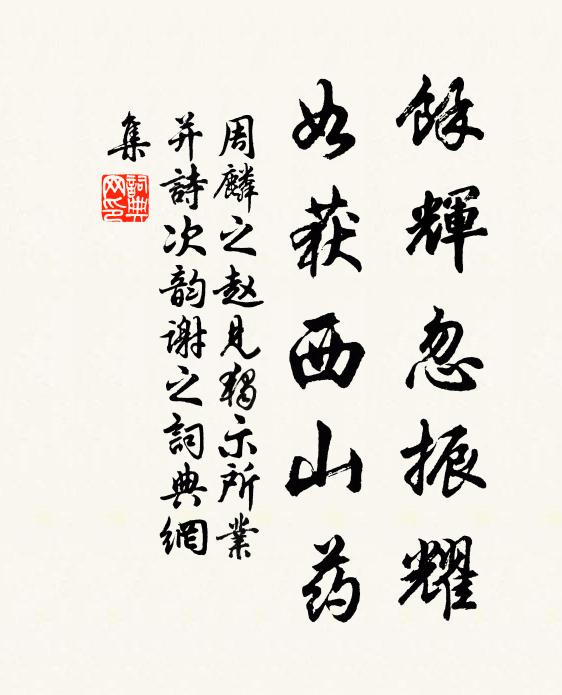 馀輝忽振耀
如获西山药
周麟之赵見獨示所業
并詩次韵谢之詞典網
集
詞典
网印